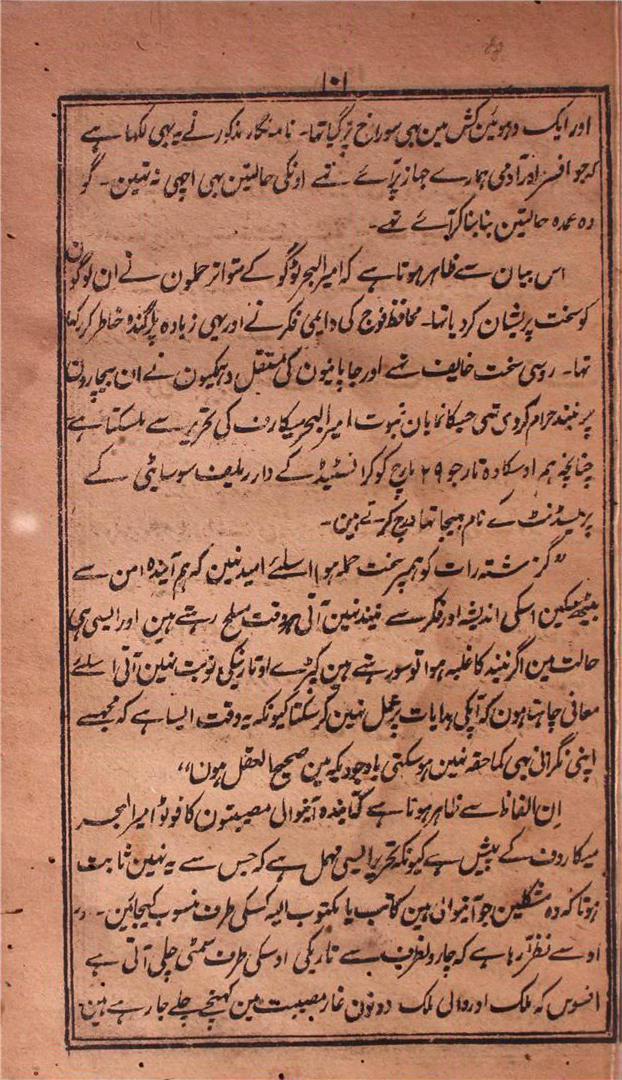 ۱۰۱
اور ایک دہوئین کش مین بہی سوراخ پڑ گیا تہا۔ نامہ نگار مذکور نے یہ بہی لکہا ہے
کہ جو افسر اور آدمی ہمارے جہاز پر آئے تہے اونکی حالتین بہی اچہی نہ تہین۔ گو
وہ عمدہ حالتین بنا بنا کر آئے تہے۔
اس بیان سے ظاہر ہوتا ہے کہ امیرالبحر ٹوگو کے متواتر حملون نے ان لوگون
کو سخت پریشان کر دیا تہا۔ محافظ فوج کی دایمی فکر نے اور بہی زیادہ پراگندہ خاطر کر رکہا
تہا۔ روسی سخت خایف تہے اور جاپانیون کی مستقل دہمکیون نے ان بیچارون
پر نیند حرام کر دی تہی جسکا نمایان ثبوت امیرالبحر میکارف کی تحریر سے ملسکتا ہے
چنانچہ ہم اوسکا وہ تار جو ۲۹ مارچ کو کرانسٹیڈ کے دار ریلیف سوسایٹی کے
پریسڈنٹ کے نام بہیجا تہا درج کرتے ہین۔
”گزشتہ رات کو ہمپر سخت حملہ ہوا اسلئے امید نہین کہ ہم آیندہ امن سے
بیٹھ سکین اسکی اندیشہ اور فکر سے نیند نہین آتی ہر وقت مسلح رہتے ہین اور ایسی ہی
حالت مین اگر نیند کا غلبہ ہوا تو سو رہتے ہین کپڑے اوتارنیکی نوبت نہین آتی اسلئے
معافی چاہتا ہون کہ آپکی ہدایات پر عمل نہین کر سکتا کیونکہ یہ وقت ایسا ہے کہ مجہسے
اپنی نگرانی بہی کماحقہ نہین ہوسکتی باوجودیکہ مین صحیح العقل ہون“
اِن الفاظ سے ظاہر ہوتا ہے کہ آیندہ آنیوالی مصیبتون کا فوٹو امیرالبحر
میکاروف کے پیش ہے کیونکہ تحریر ایسی مہمل ہے کہ جس سے یہ نہین ثابت
ہوتا کہ وہ مشکلین جو آنیوالی ہین کاتب یا مکتوب الیہ کسکی طرف منسوب کیجائین۔
اوسے نظر آرہا ہے کہ چارونطرف سے تاریکی اوسکی طرف سمٹی چلی آتی ہے
افسوس کہ ملک اور والی ملک دونون غار مصیبت مین کہنچے چلے جا رہے ہین